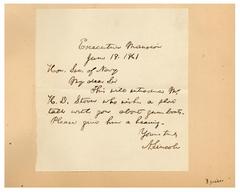 Executive Mansion
June 19. 1861
Hon. Sec. of Navy
My dear Sir
This will introduce Mr
H. D. Stover who wishes a short
talk with you about gun boats.
Please give him a hearing.
Yours truly
A. Lincoln